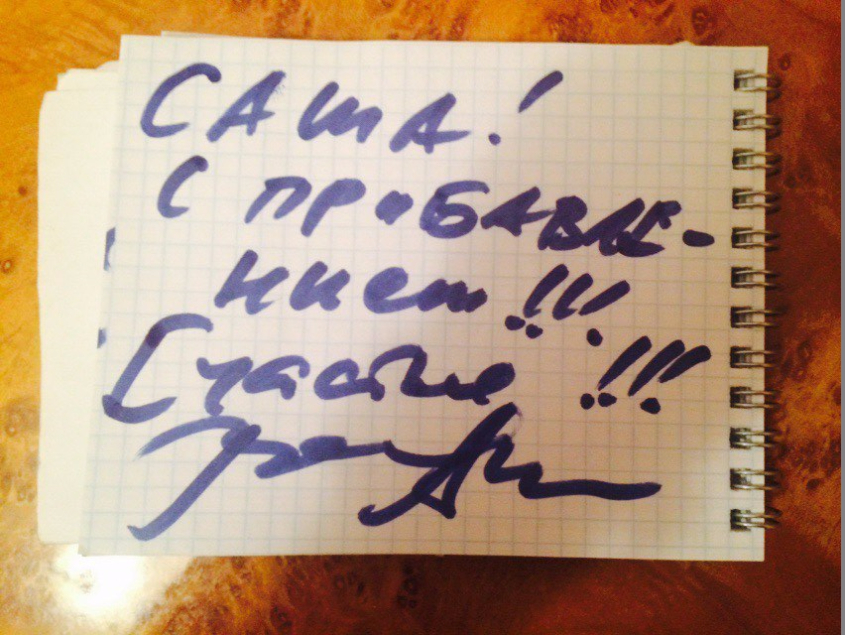 САША!
С ПРИБАВЛЕ-
НИЕМ!!!
Счастье!!!